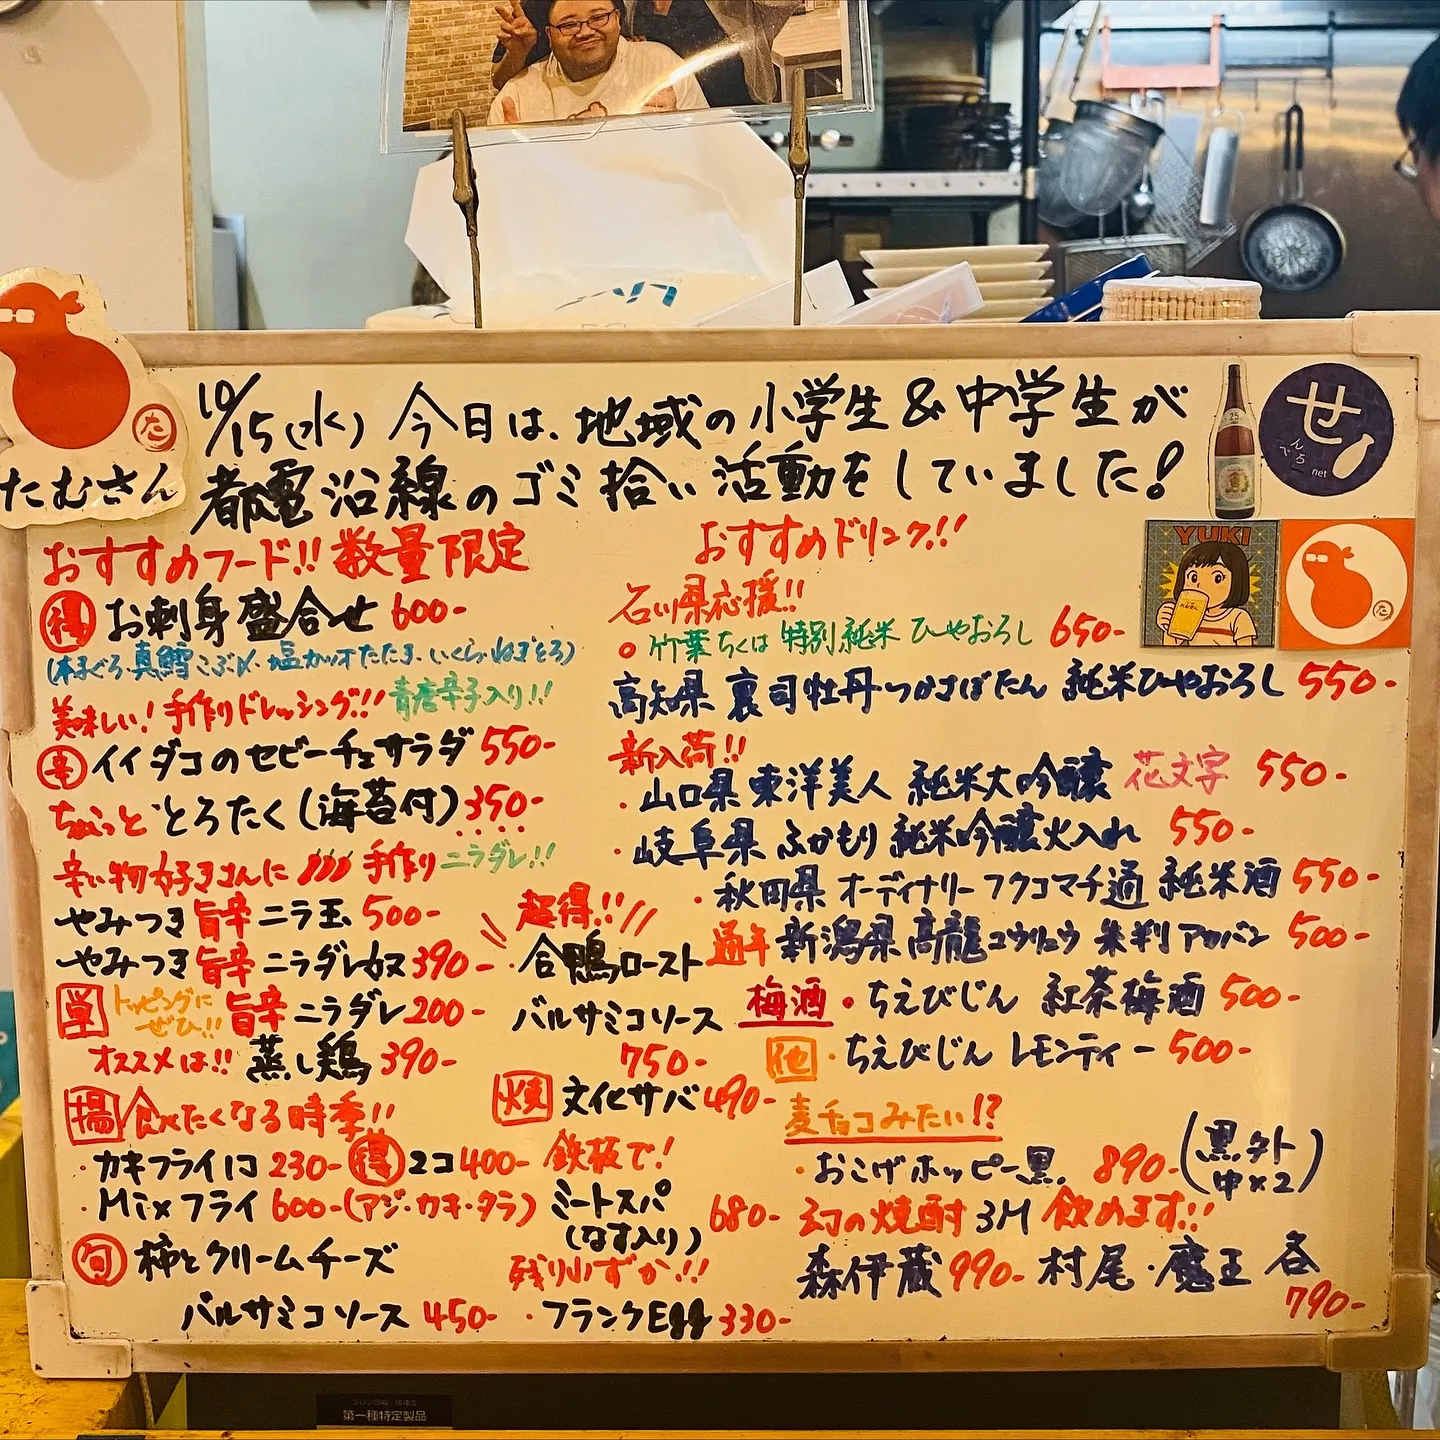 10/15(水) 今日は、地域の小学生&中学生が
都電沿線のゴミ拾い活動をしていました!
たむさん
せ
んでんち
net
YUKI
おすすめフード!! 数量限定
得 お刺身盛合せ 600-
(本まぐろ・真鱈こぶ〆・塩カツオたたき・いくら・ねぎとろ)
美味しい!手作りドレッシング!! 青唐辛子入り!!
辛 イイダコのセビーチェサラダ 550-
ちょっと とろたく(海苔付) 350-
辛い物好きさんに 手作りニラダレ!!
やみつき旨辛ニラ玉 500-
やみつき旨辛ニラダレカヌ 390-
単 トッピングにぜひ!! 旨辛ニラダレ 200-
オススメは!! 蒸し鶏 390-
揚 食べたくなる時季!!
・カキフライ1コ 230- 得 2コ 400-
・Mixフライ 600-(アジ・カキ・タラ)
旬 柿とクリームチーズ
バルサミコソース 450-
超得!!
・合鴨ロースト
バルサミコソース
750-
焼 文化サバ 490-
鉄板で!
ミートスパ
(なす入り) 680-
残りわずか!!
・フランクEgg 330-
おすすめドリンク!!
石川県応援!!
竹葉 ちくは 特別純米 ひやおろし 650-
高知県 裏司牡丹 つかさぼたん 純米ひやおろし 550-
新入荷!!
・山口県 東洋美人 純米大吟醸 花文字 550-
・岐阜県 ふかもり 純米吟醸火入れ 550-
・秋田県 オーディナリー フクコマチ通 純米酒 550-
通年 新潟県 高龍 コウリュウ 朱判 アカバン 500-
梅酒・ちえびじん 紅茶梅酒 500-
他・ちえびじん レモンティー 500-
麦チョコみたい!?
・おこげホッピー黒 890-(黒外 中×2)
幻の焼酎3M 飲めます!!
森伊蔵 990- 村尾・魔王 各 790-
第一種特定製品